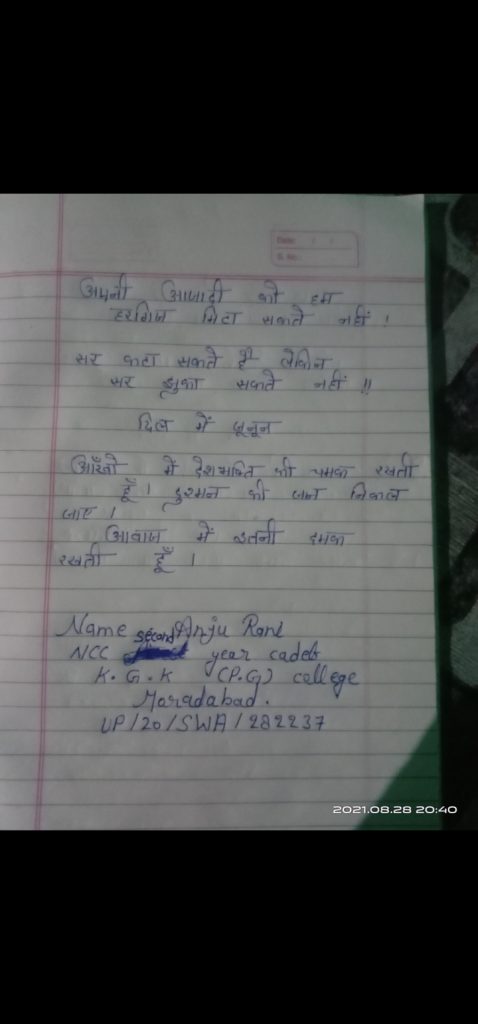 Date: / /
S. No.:
अपनी आजादी को हम
हरगिज मिटा सकते नहीं !
सर कटा सकते हैं लेकिन
सर झुका सकते नहीं !!
दिल में जूनून
आँखों में देशभक्ति की चमक रखती
हूँ । दुश्मन की जान निकल
जाए ।
आवाज में इतनी दमक
रखती हूँ ।
Name Anju Rani
NCC second year cadets
K. G. K (P.G) college
Moradabad.
UP/20/SWA/282237
2021.08.28 20:40